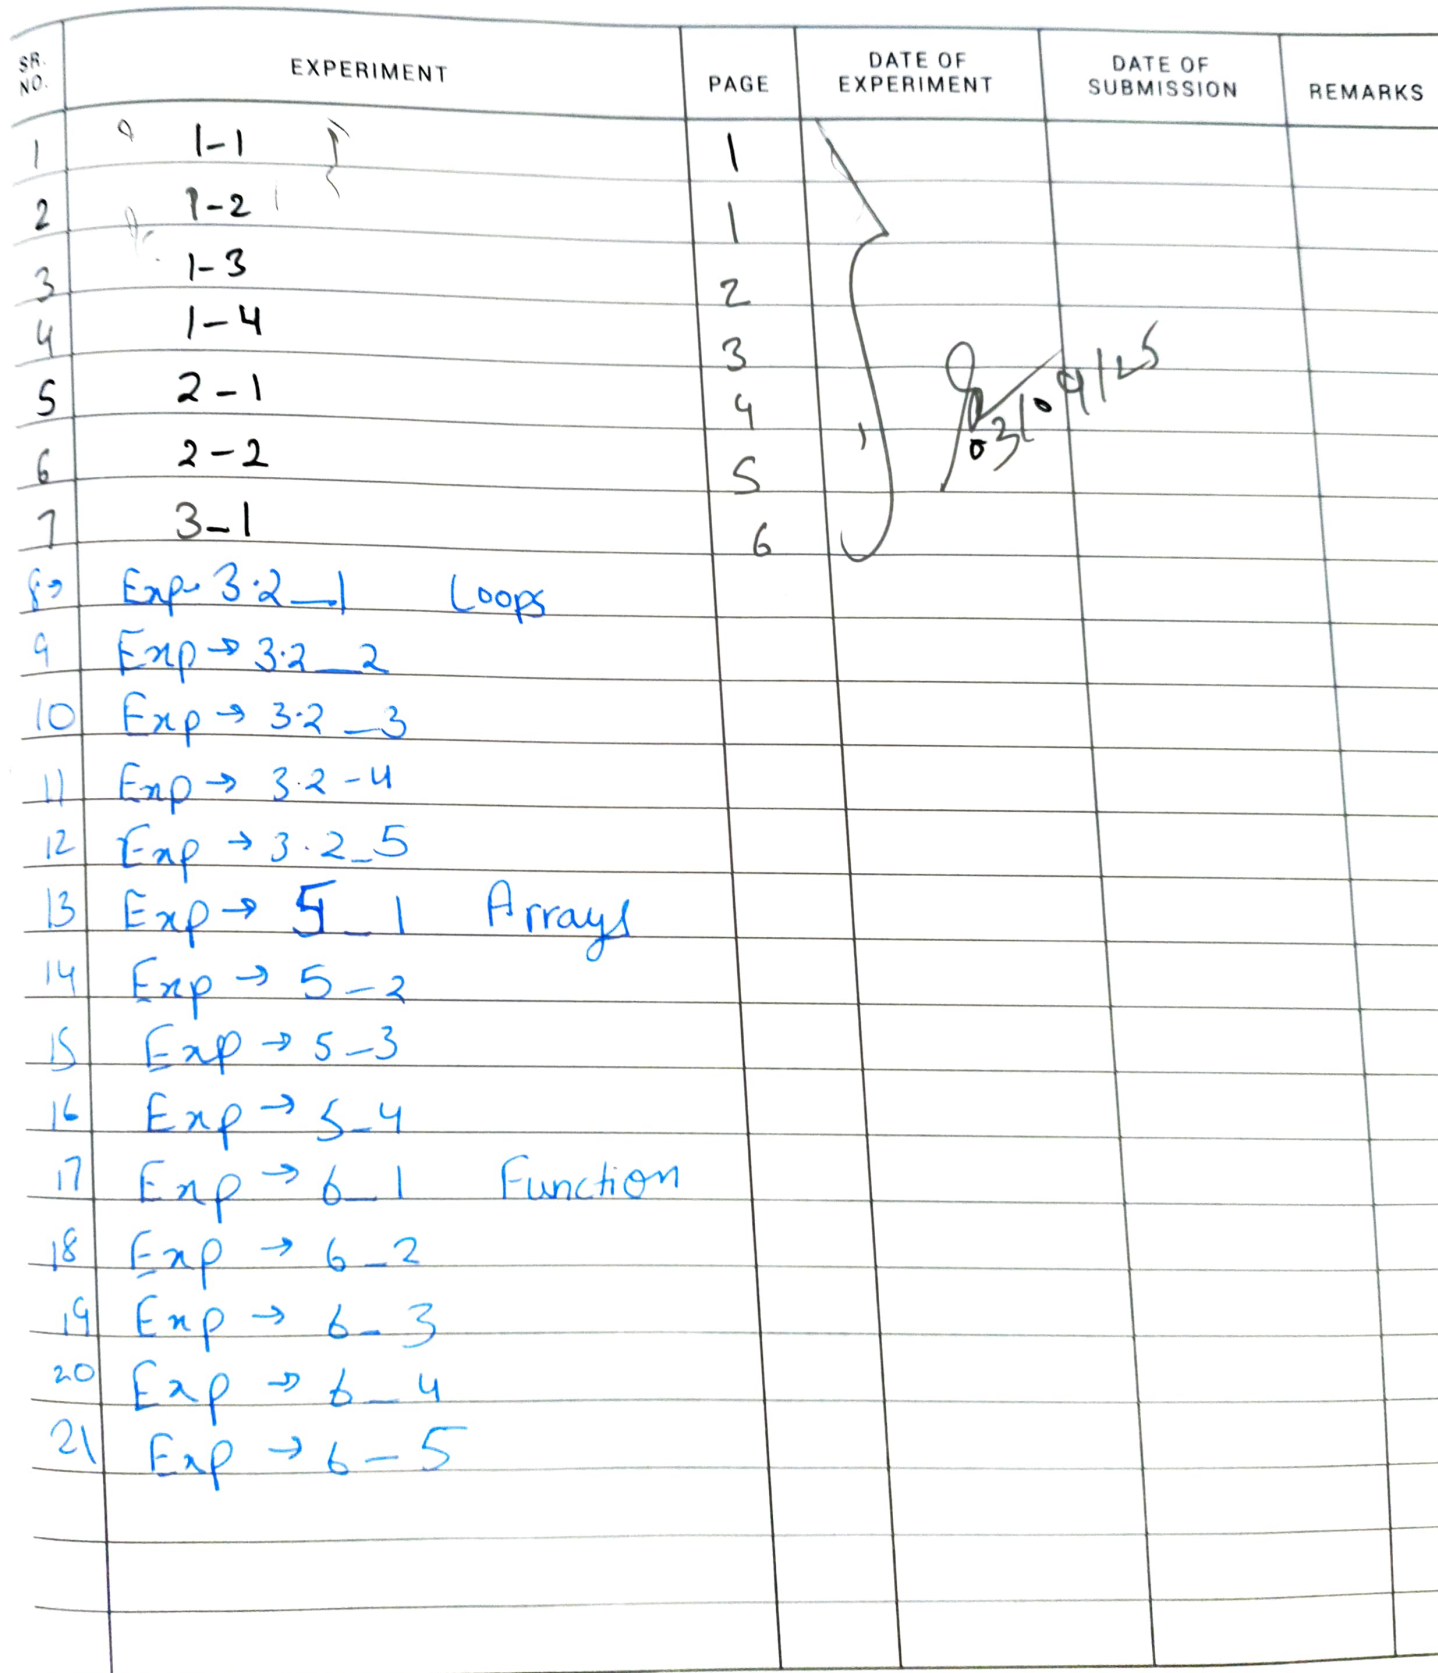 SR. NO. EXPERIMENT PAGE DATE OF EXPERIMENT DATE OF SUBMISSION REMARKS
1 1-1 1
2 1-2 1
3 1-3 2
4 1-4 3
5 2-1 4
6 2-2 5
7 3-1 6
03/09/25
8 Exp 3.2_1 Loops
9 Exp → 3.2_2
10 Exp → 3.2_3
11 Exp → 3.2-4
12 Exp → 3.2_5
13 Exp → 5_1 Arrays
14 Exp → 5-2
15 Exp → 5-3
16 Exp → 5_4
17 Exp → 6_1 Function
18 Exp → 6_2
19 Exp → 6_3
20 Exp → 6_4
21 Exp → 6-5